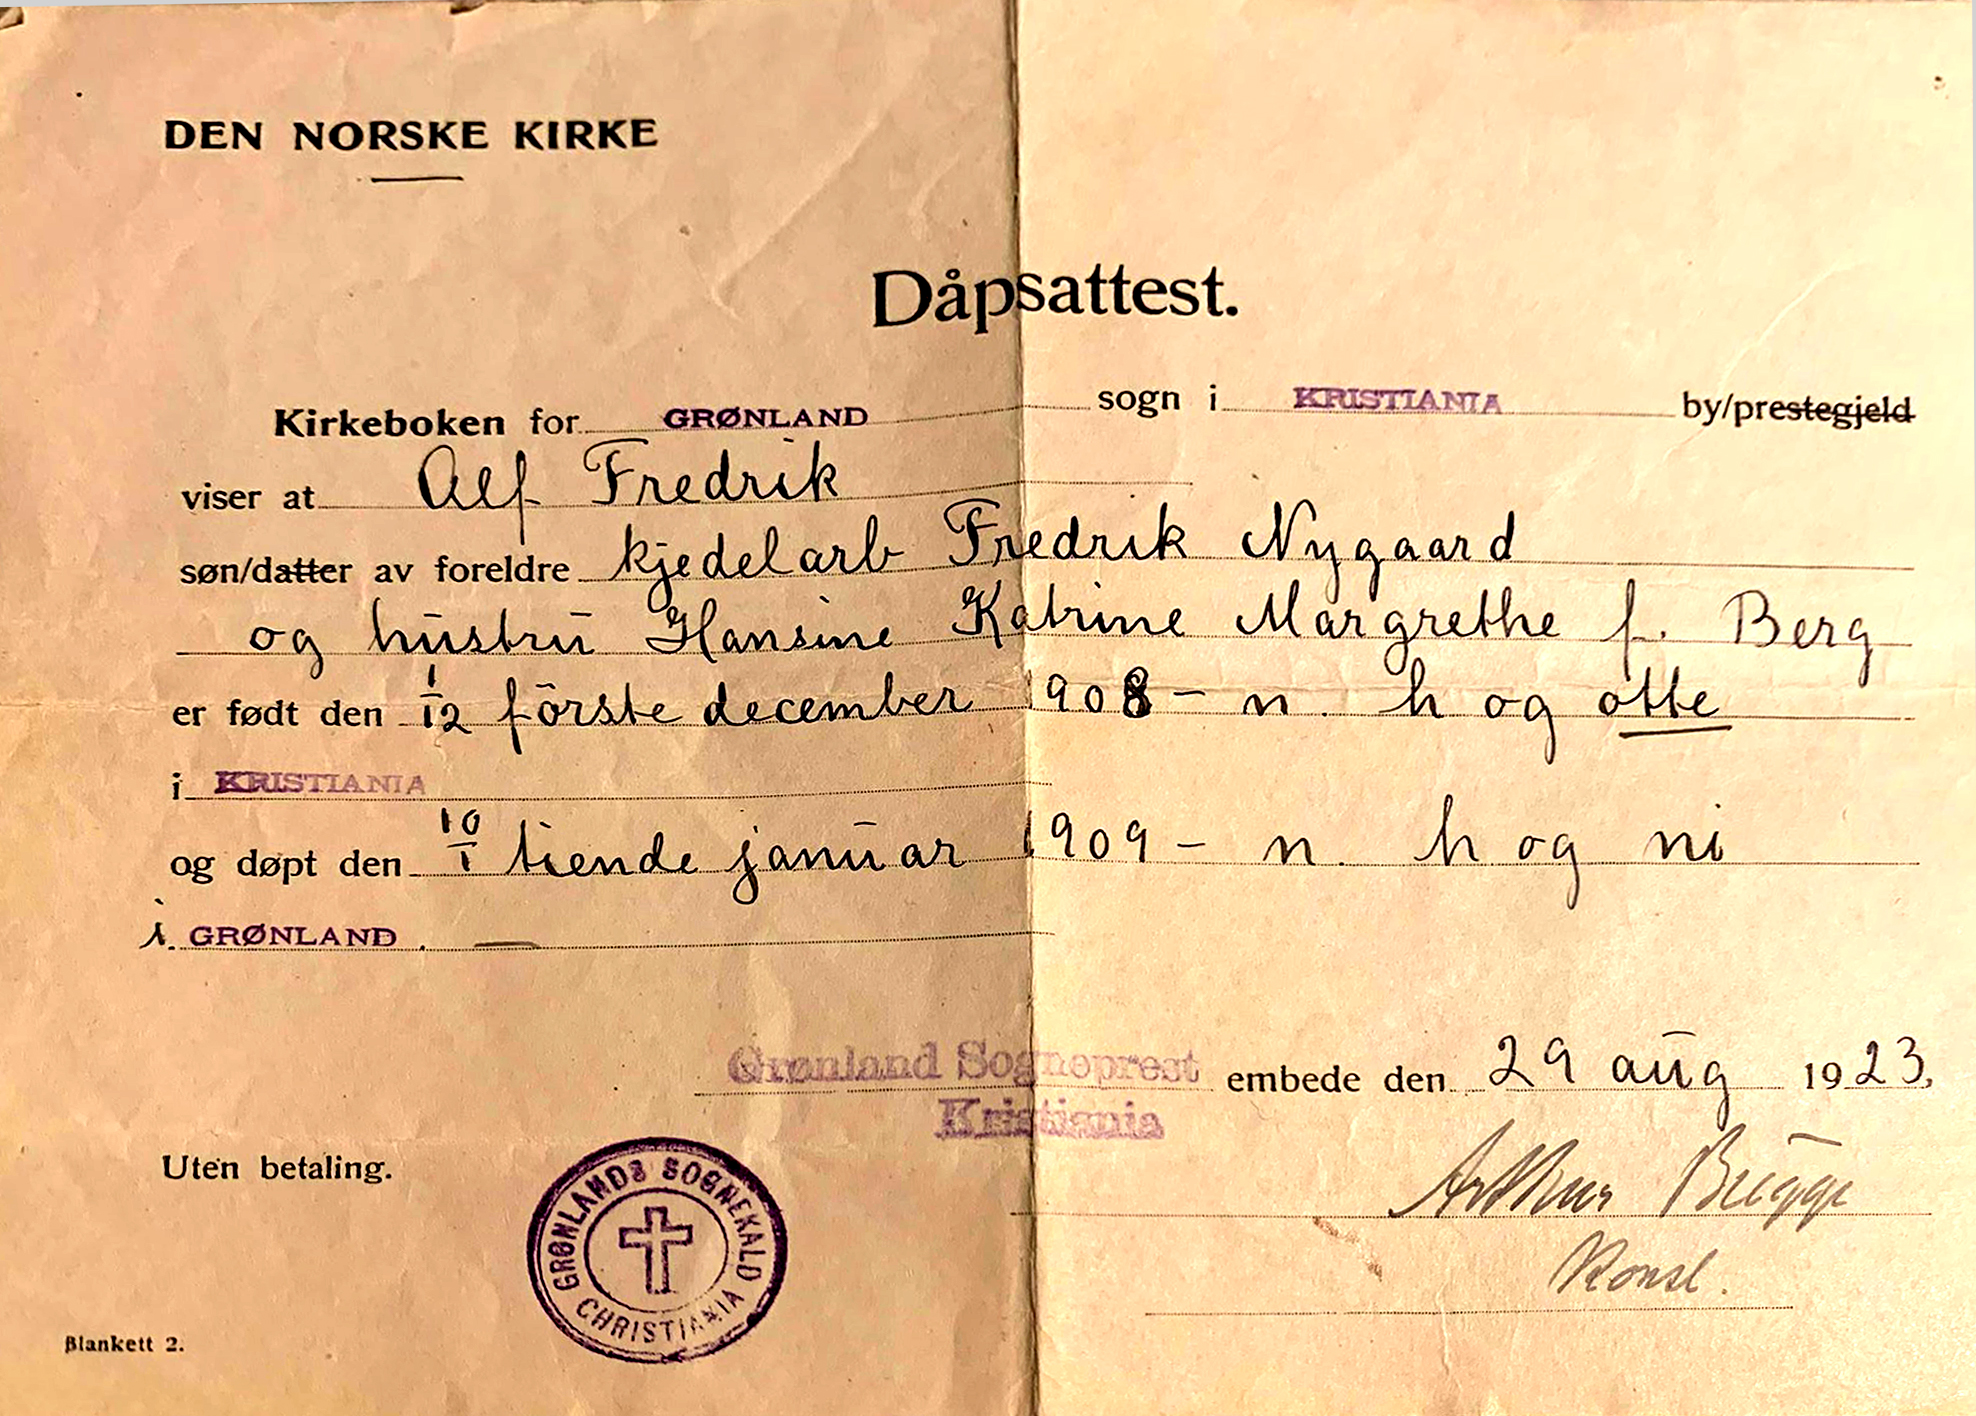 DEN NORSKE KIRKE
Dåpsattest.
Kirkeboken for GRØNLAND sogn i KRISTIANIA by/prestegjeld
viser at Alf Fredrik
søn/datter av foreldre kjedelarb Fredrik Nygaard
og hustru Hansine Katrine Margrethe f. Berg
er født den 1/12 förste december 1908 – n. h og otte
i KRISTIANIA
og døpt den 10/1 tiende januar 1909 – n. h og ni
i GRØNLAND.
Grønland Sogneprest embede den 29 aug 1923,
Kristiania
Uten betaling.
GRØNLANDS SOGNEKALD
CHRISTIANIA
Arthur Brügge
Blankett 2.